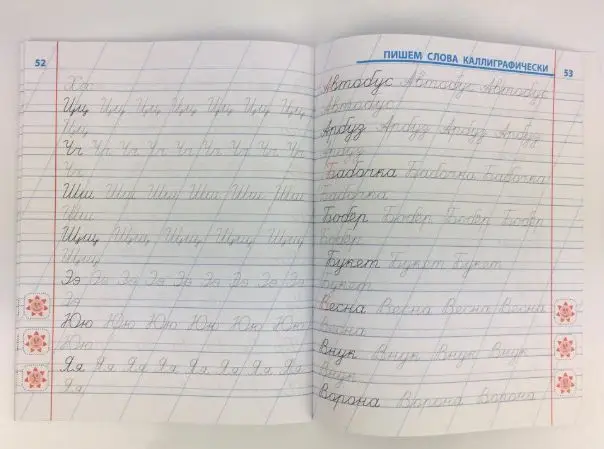 52
Хх
Цц Цц Цц Цц Цц Цц Цц
Цц
Чч Чч Чч Чч Чч Чч Чч Чч Чч
Чч
Шш Шш Шш Шш Шш Шш
Шш
Щщ Щщ Щщ Щщ Щщ
Щщ
Ээ Ээ Ээ Ээ Ээ Ээ Ээ Ээ
Ээ
Юю Юю Юю Юю Юю Юю
Юю
Яя Яя Яя Яя Яя Яя Яя Яя
Яя
ПИШЕМ СЛОВА КАЛЛИГРАФИЧЕСКИ 53
Автобус Автобус Автобус
Автобус
Арбуз Арбуз Арбуз Арбуз
Арбуз
Бабочка Бабочка Бабочка
Бабочка
Бобёр Бобёр Бобёр Бобёр
Бобёр
Букет Букет Букет
Букет
Весна Весна Весна Весна
Весна
Внук Внук Внук Внук
Внук
Ворона Ворона Ворона